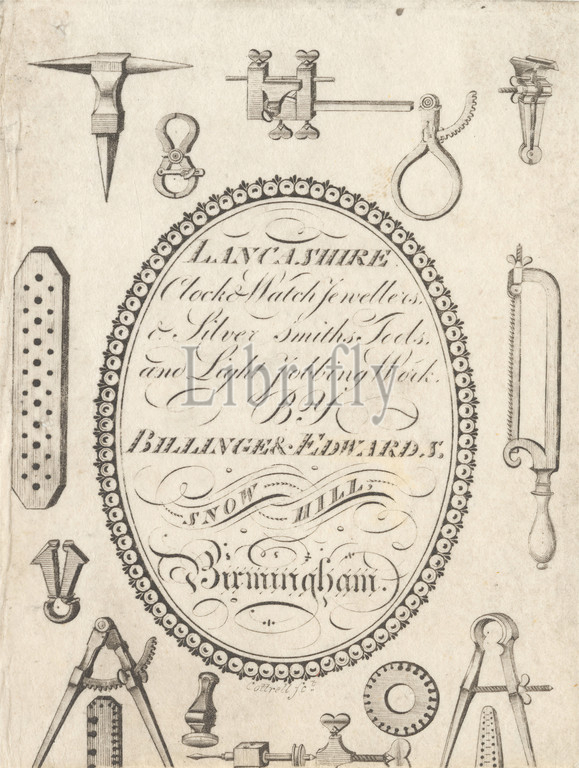 LANCASHIRE
Clock & Watch Jewellers,
& Silver Smiths Tools,
and Light Jobbing Work.
By
BILLINGE & EDWARDS.
SNOW HILL,
Birmingham.
Cottrell
Librnfly